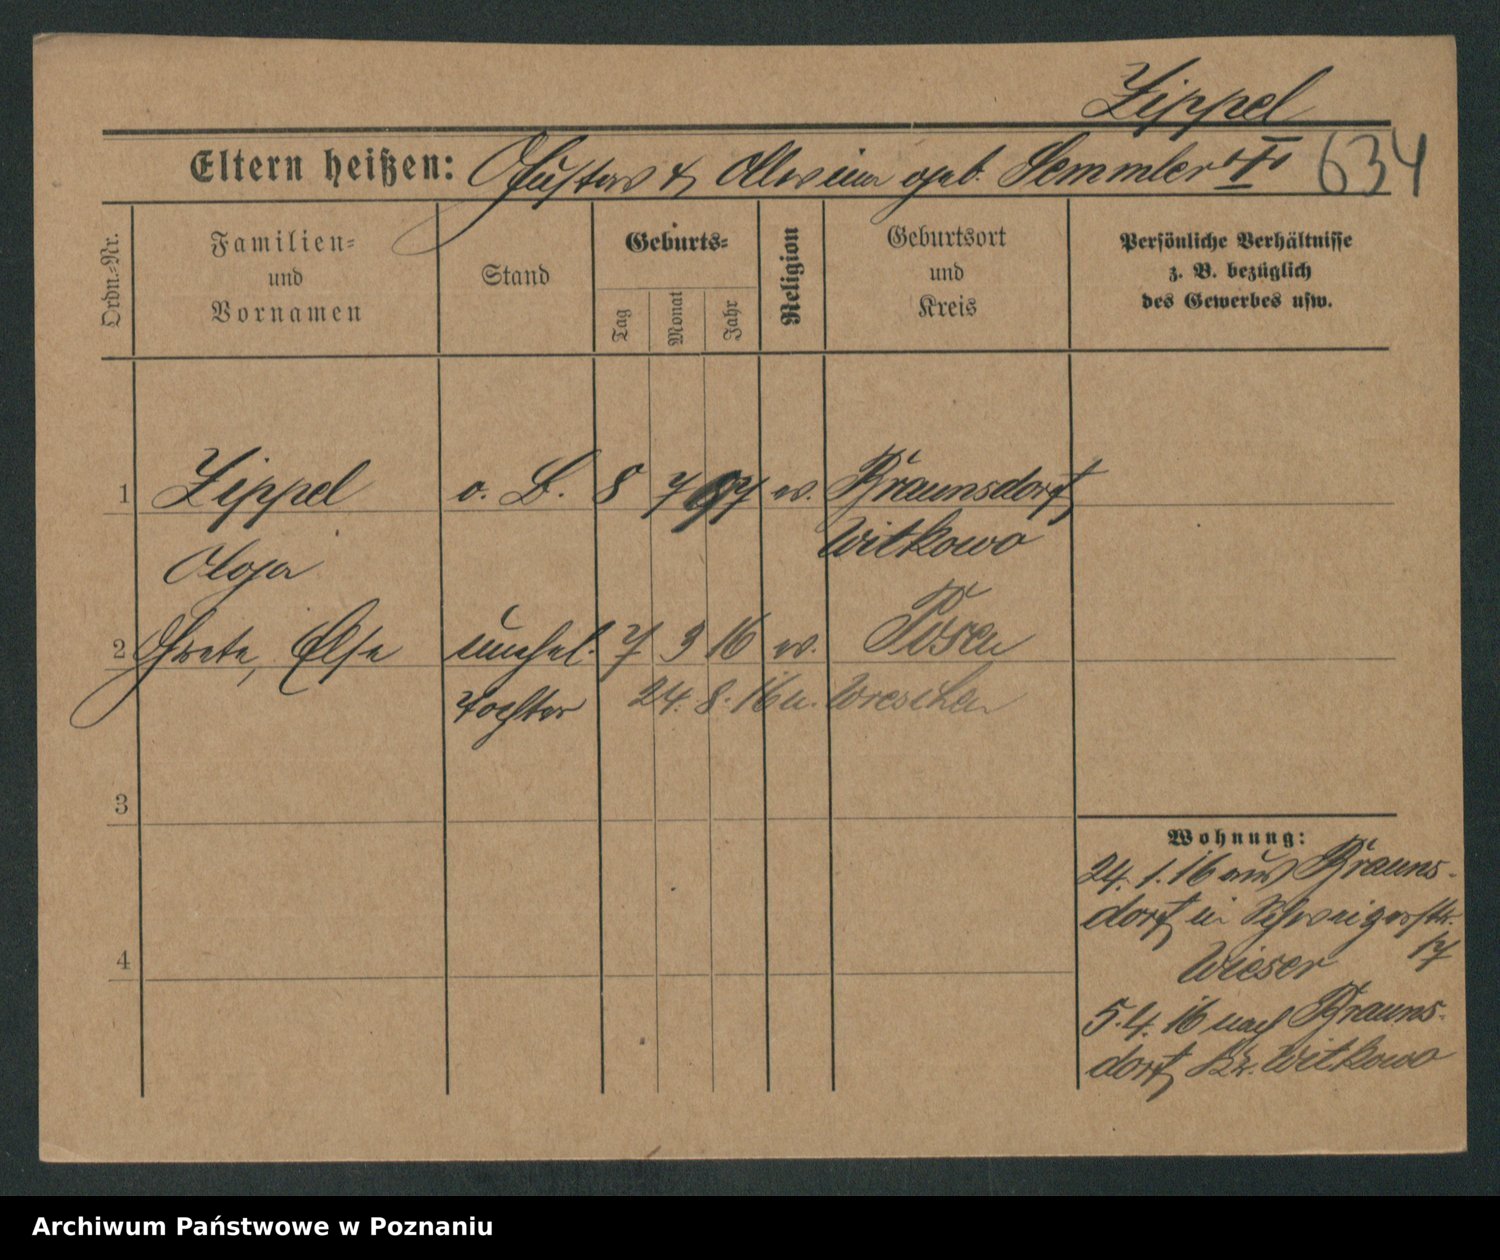 Zippel
Eltern heißen: Gustav & Alwine geb. Semmler I 634
Ordn.-Nr.
Familien-
und
Vornamen
Stand
Geburts-
Tag
Monat
Jahr
Religion
Geburtsort
und
Kreis
Persönliche Verhältnisse
z. B. bezüglich
des Gewerbes usw.
1 Zippel o. B. 8 7 97 ev. Braunsdorf
Witkowo
Olga
2 Grete, Else unehel. 7 3 16 ev. Posen
Tochter 24. 8. 16 n. Wreschen
3
4
Wohnung:
24. 1. 16 aus Brauns-
dorf in Schweigerstr.
Wieser 17
5. 4. 16 nach Brauns-
dorf Kr. Witkowo
Archiwum Państwowe w Poznaniu